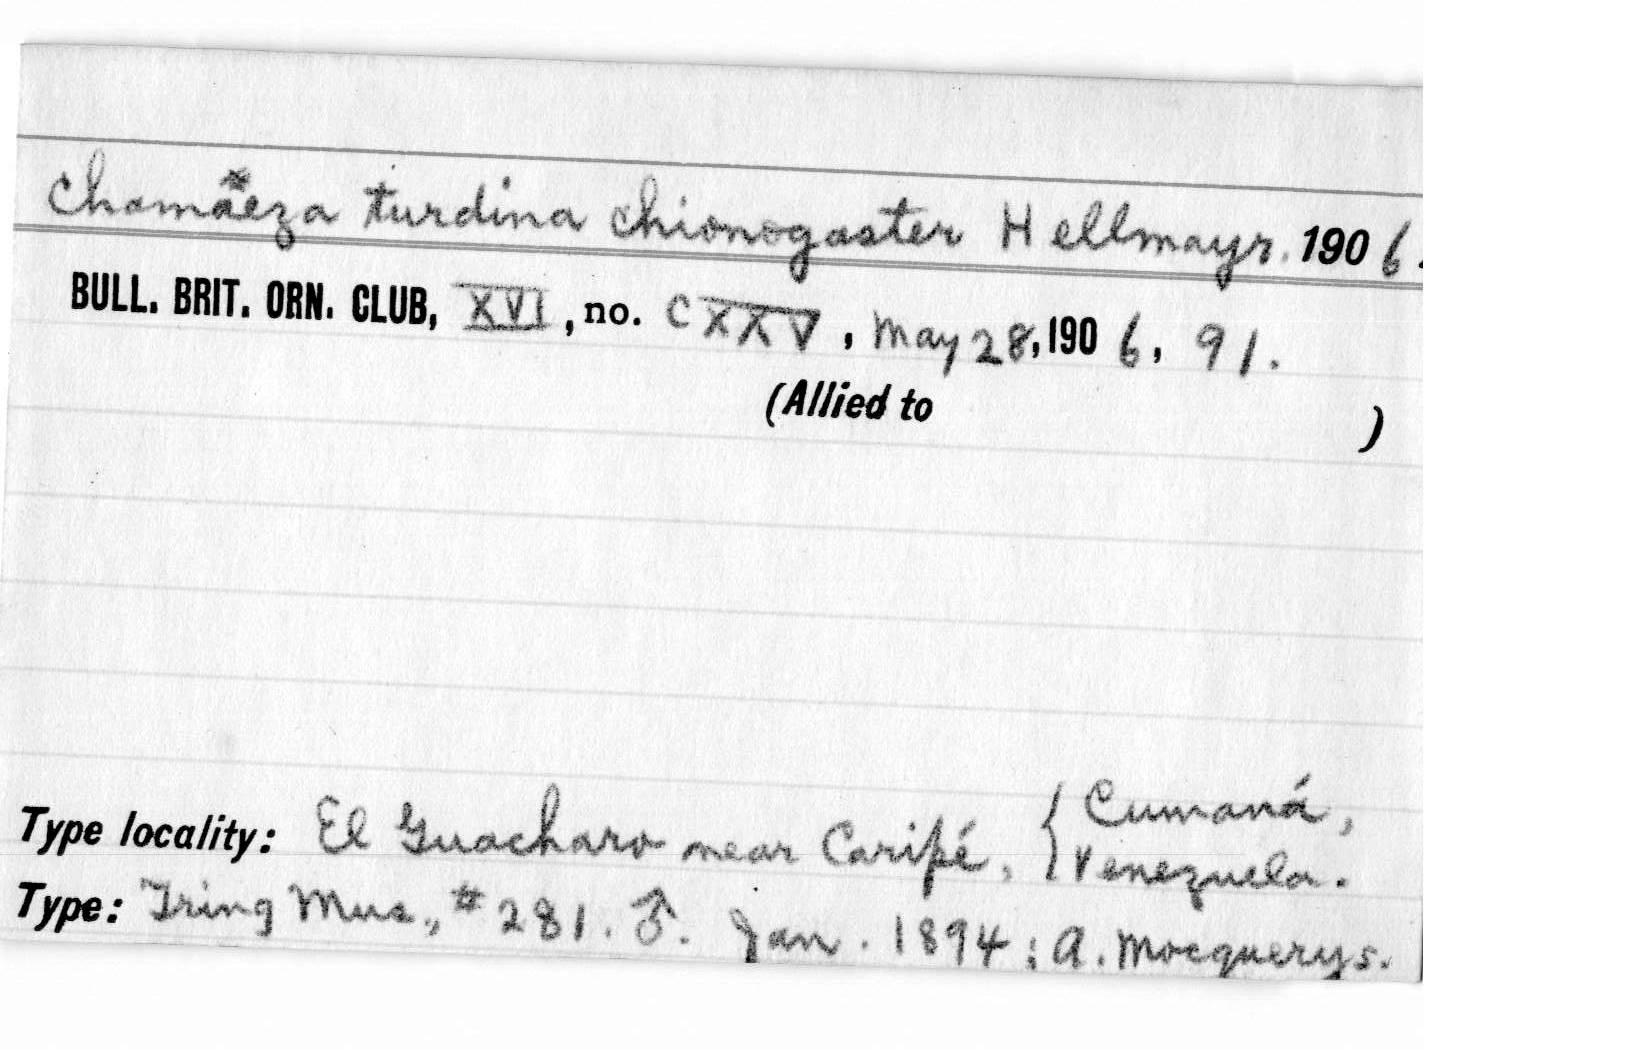 Chamäeza turdina chionogaster Hellmayr. 1906.
BULL. BRIT. ORN. CLUB, XVI, no. CXXV, May 28, 1906, 91.
(Allied to )
Type locality: El Guacharo near Caripé, { Cumaná, Venezuela.
Type: Tring Mus., #281. ♂. Jan. 1894; A. Mocquerys.